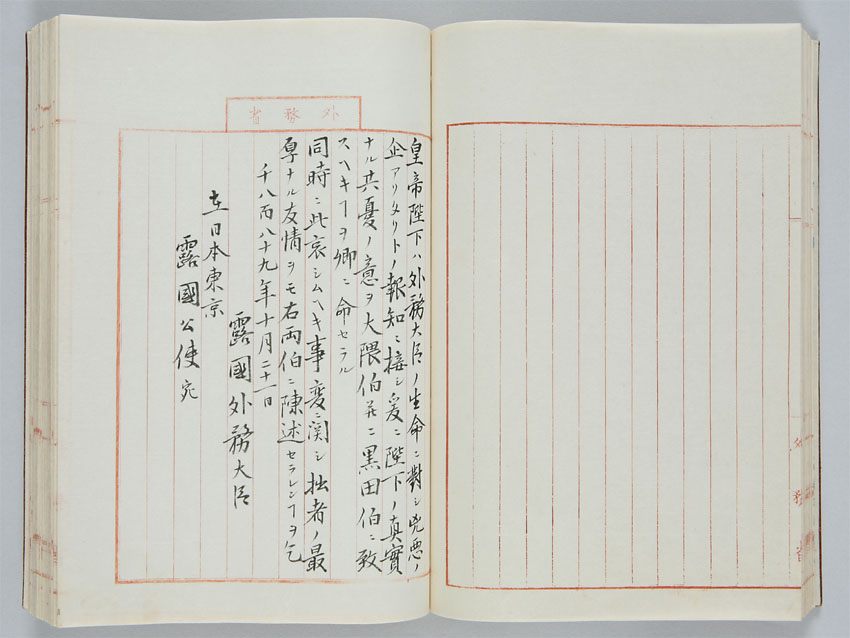 外務省
皇帝陛下ハ外務大臣ノ生命ニ對シ兇悪ノ
企アリタリトノ報知ニ接シ爰ニ陛下ノ真實
ナル共憂ノ意ヲ大隈伯并ニ黒田伯ニ致
スヘキヿヲ卿ニ命セラル
同時ニ此哀シムヘキ事変ニ関シ拙者ノ最
厚ナル友情ヲモ右両伯ニ陳述セラレンヿヲ乞
千八百八十九年十月二十一日
露國外務大臣
在日本東京
露國公使宛
外務省